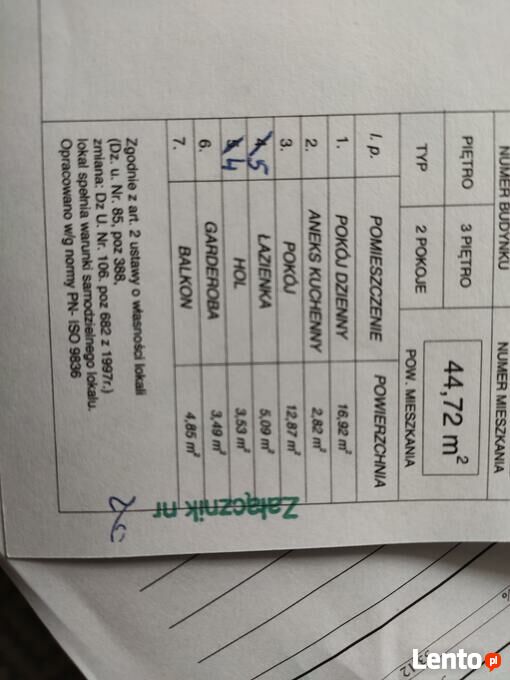 NUMER BUDYNKU NUMER MIESZKANIA
PIĘTRO 3 PIĘTRO
TYP 2 POKOJE POW. MIESZKANIA 44,72 m²
l. p. POMIESZCZENIE POWIERZCHNIA
1. POKÓJ DZIENNY 16,92 m²
2. ANEKS KUCHENNY 2,82 m²
3. POKÓJ 12,87 m²
4. 5 ŁAZIENKA 5,09 m²
5. 4 HOL 3,53 m²
6. GARDEROBA 3,49 m²
7. BALKON 4,85 m²
Zgodnie z art. 2 ustawy o własności lokali
(Dz. u. Nr. 85, poz 388,
zmiana: Dz U. Nr. 106. poz 682 z 1997r.)
lokal spełnia warunki samodzielnego lokalu.
Opracowano w/g normy PN- ISO 9836
Załącznik nr
Lento.pl